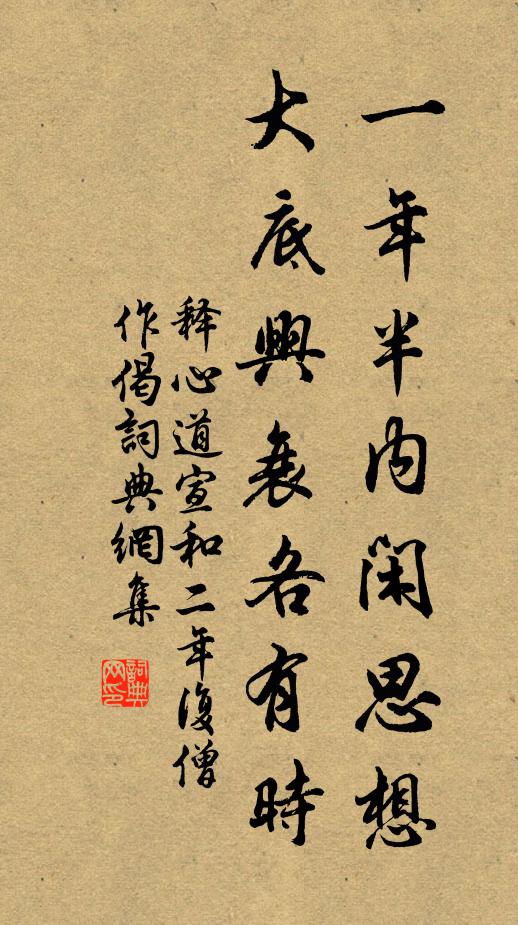 一年半内閑思想
大底興衰各有時
释心道宣和二年復僧
作偈詞典網集
詞典网印